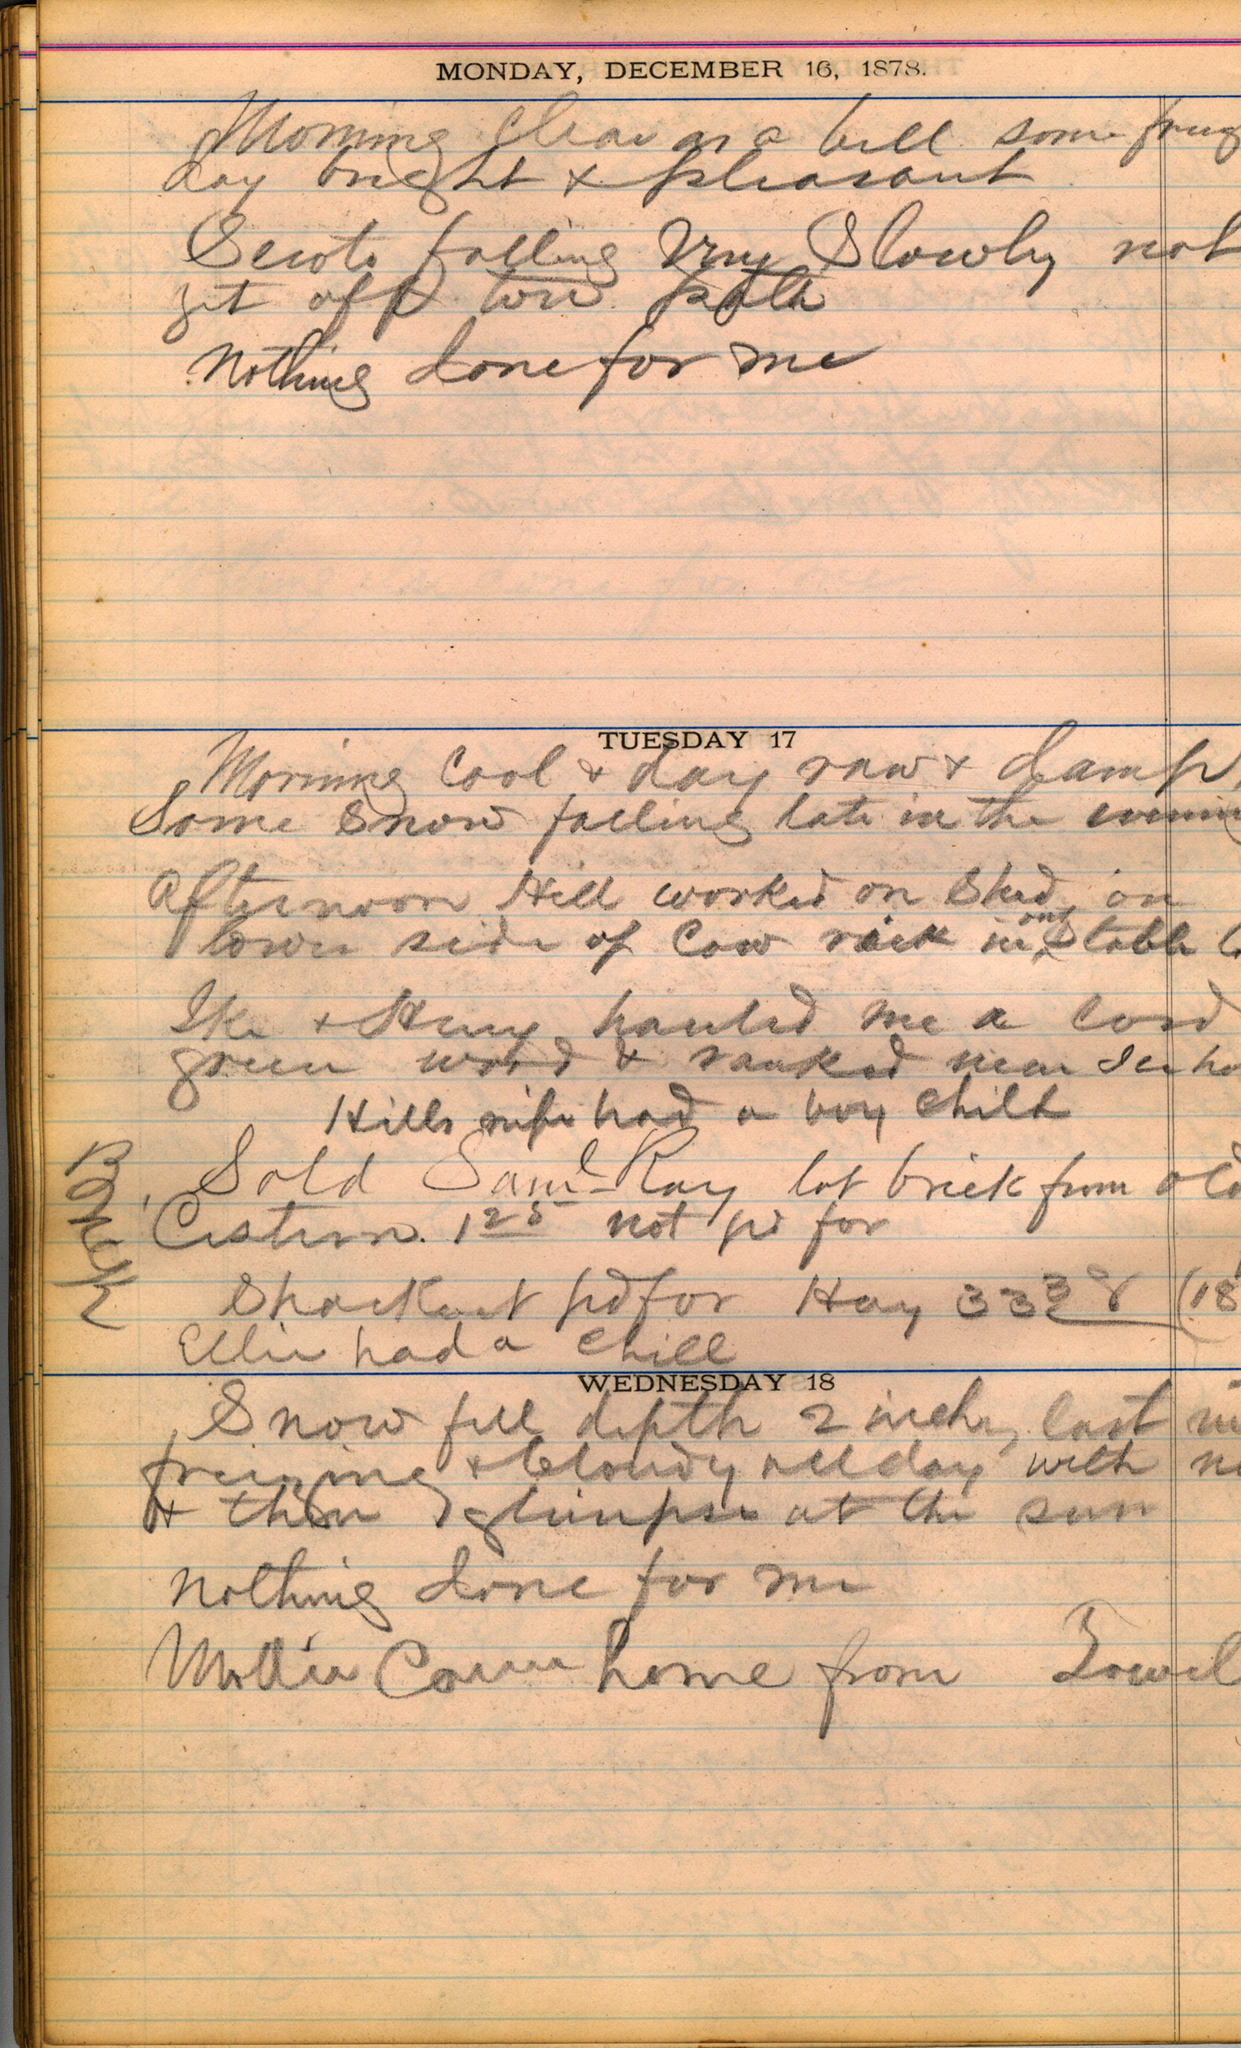 MONDAY, DECEMBER 16, 1878.
Morning Clear as a bell some
day bright & pleasant
Scioto falling Very Slowly not
yet off tow path
Nothing done for me
TUESDAY 17
Morning Cool & day raw & damp
Some Snow falling late in the evening
Afternoon Hill worked on Shed on
lower side of Cow rack in
Ike & Henry hauled me a Cord
green wood & ranked near
Hills wife had a boy child
Brick
Sold Saml Ray lot brick from old
Cistern. 1 25 not pd for
pd for Hay 33 38 (18
Ellie had a Chill
WEDNESDAY 18
Snow fell depth 2 inches last
freezing & Cloudy all day with
& then glimpse at the sun
Nothing done for me
Mollie Came home from